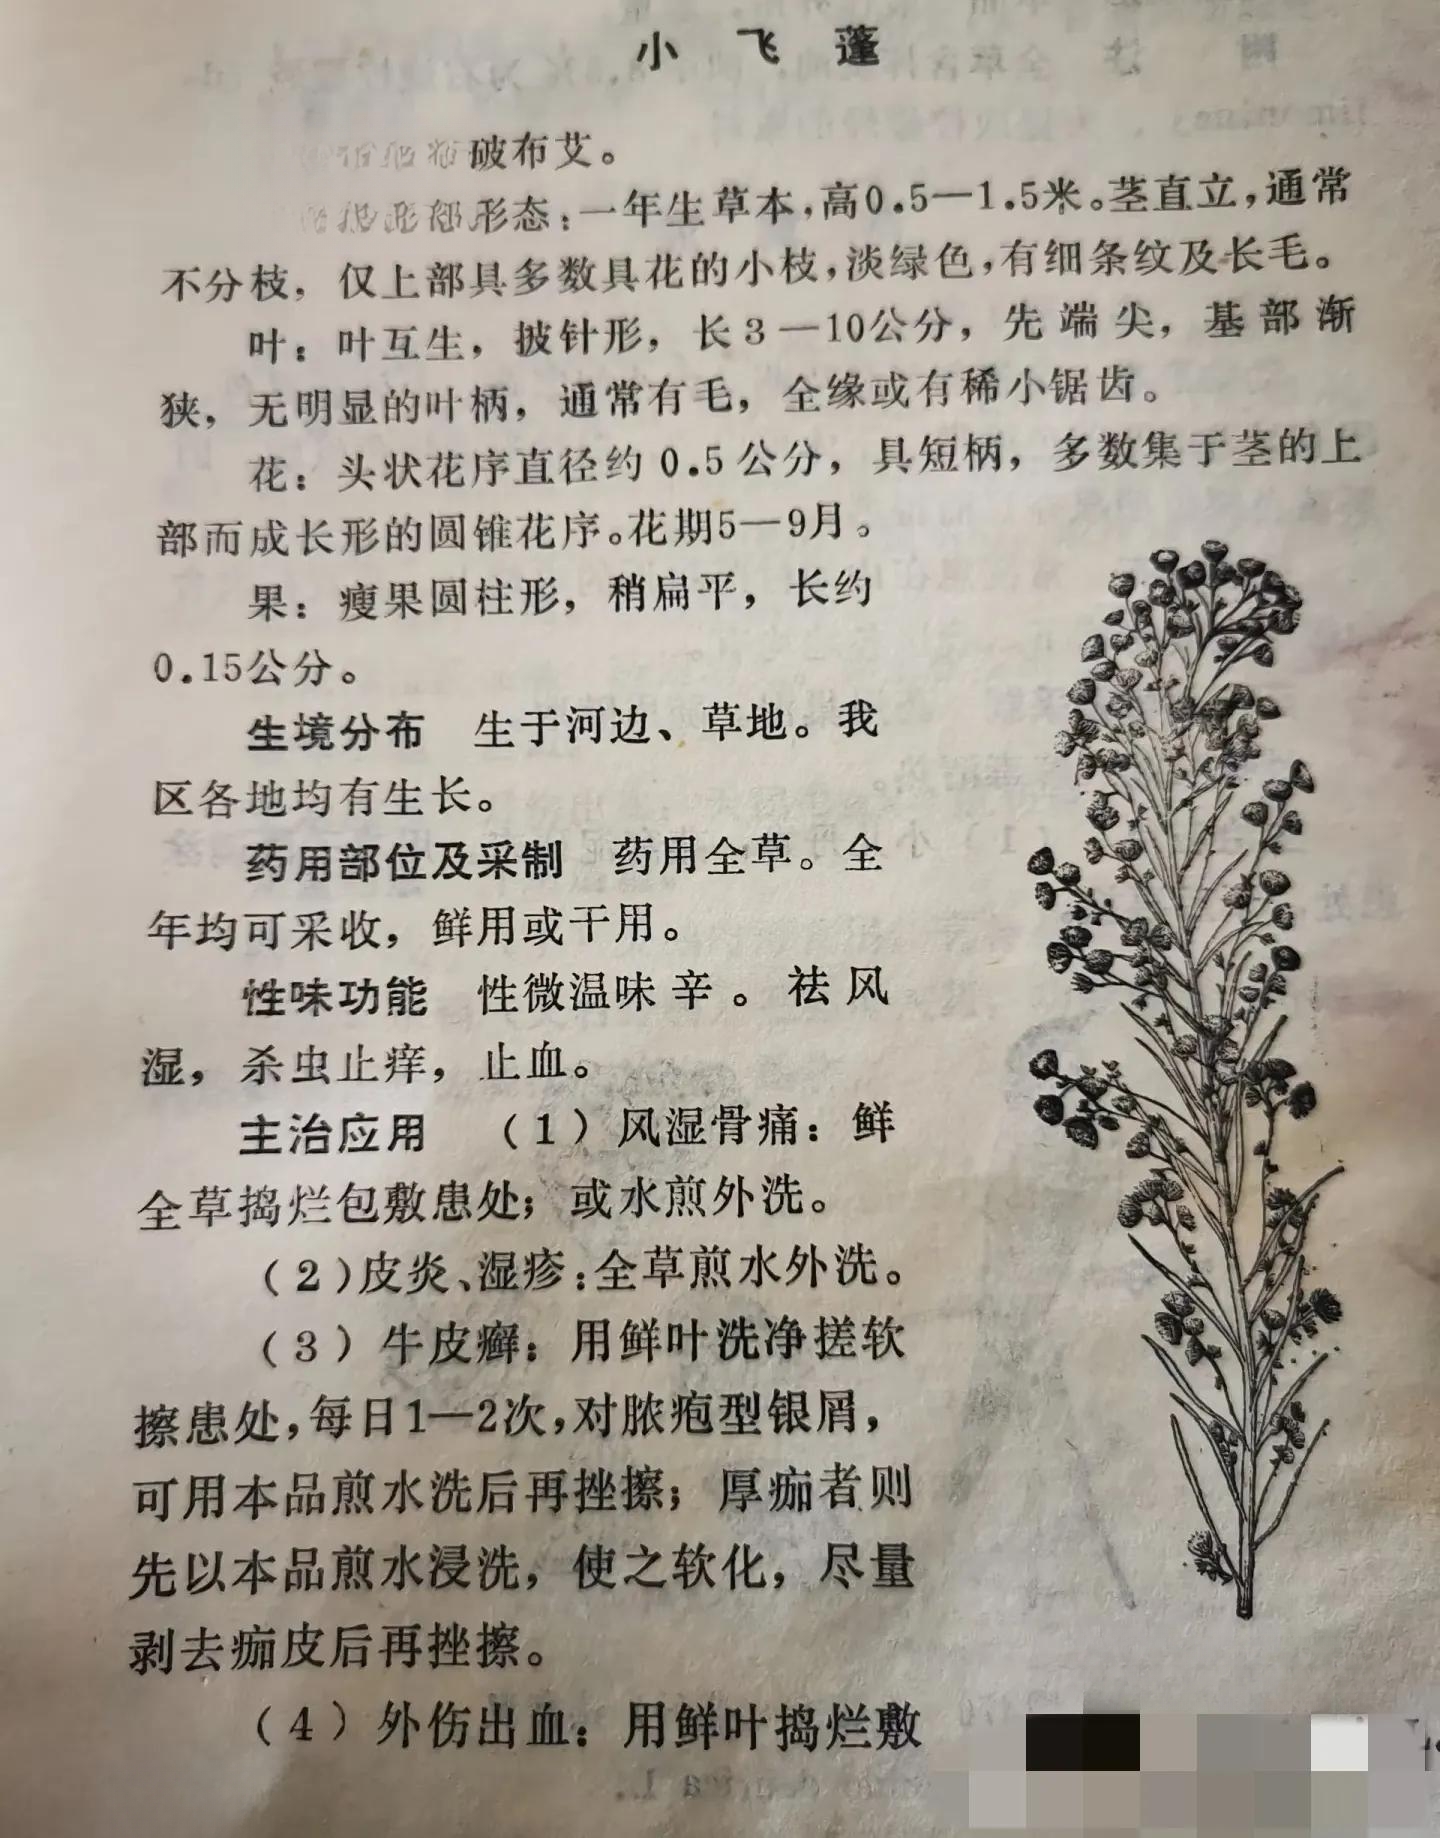 小飞蓬
破布艾。
形态：一年生草本，高0.5—1.5米。茎直立，通常
不分枝，仅上部具多数具花的小枝，淡绿色，有细条纹及长毛。
叶：叶互生，披针形，长3—10公分，先端尖，基部渐
狭，无明显的叶柄，通常有毛，全缘或有稀小锯齿。
花：头状花序直径约0.5公分，具短柄，多数集于茎的上
部而成长形的圆锥花序。花期5—9月。
果：瘦果圆柱形，稍扁平，长约
0.15公分。
生境分布 生于河边、草地。我
区各地均有生长。
药用部位及采制 药用全草。全
年均可采收，鲜用或干用。
性味功能 性微温味辛。祛风
湿，杀虫止痒，止血。
主治应用 （1）风湿骨痛：鲜
全草捣烂包敷患处；或水煎外洗。
（2）皮炎、湿疹：全草煎水外洗。
（3）牛皮癣：用鲜叶洗净搓软
擦患处，每日1—2次，对脓疱型银屑，
可用本品煎水洗后再挫擦；厚痂者则
先以本品煎水浸洗，使之软化，尽量
剥去痂皮后再挫擦。
（4）外伤出血：用鲜叶捣烂敷